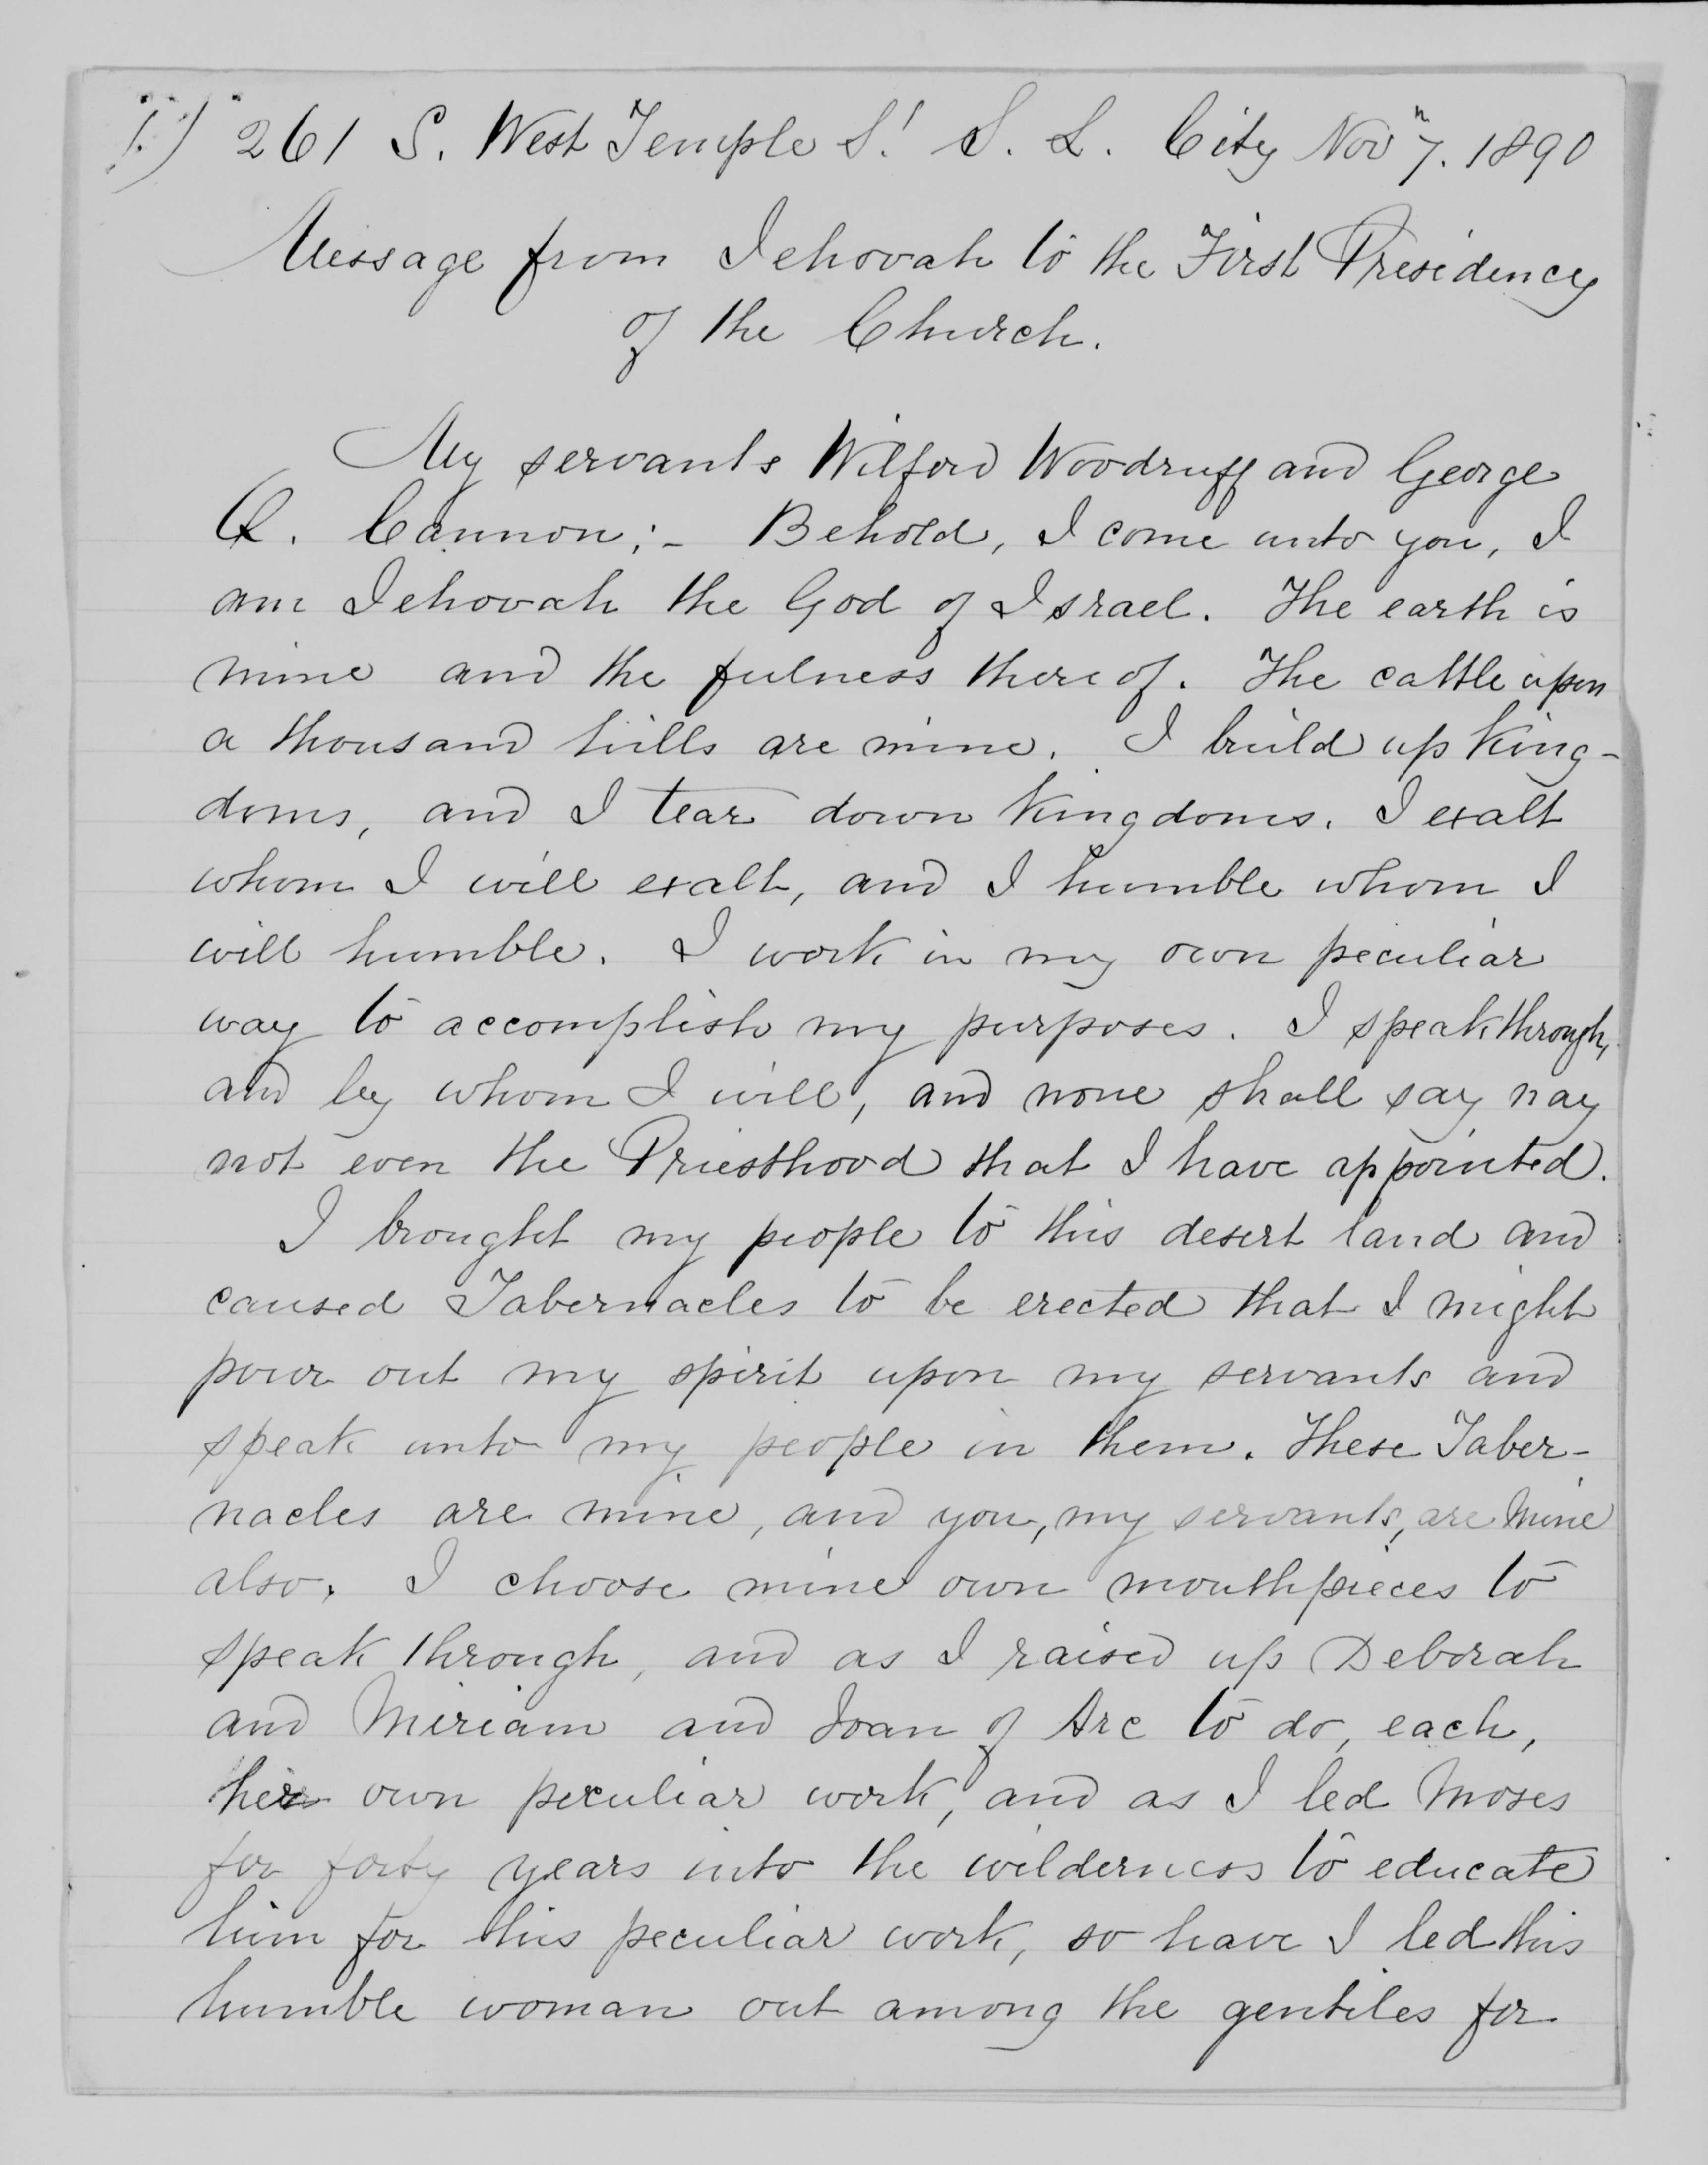 1.) 261 S. West Temple St. S. L. City Nov 7. 1890
Message from Jehovah to the First Presidency
of the Church.
My servants Wilford Woodruff and George
Q. Cannon; – Behold, I come unto you, I
am Jehovah the God of Israel. The earth is
mine and the fulness there of. The cattle upon
a thousand hills are mine. I build up King-
doms, and I tear down Kingdoms. I exalt
whom I will exalt, and I humble whom I
will humble. I work in my own peculiar
way to accomplish my purposes. I speak through,
and by whom I will, and none shall say nay
not even the Priesthood that I have appointed.
I brought my people to this desert land and
caused Tabernacles to be erected that I might
pour out my spirit upon my servants and
speak unto my people in them. These Taber-
nacles are mine, and you, my servants, are mine
also. I choose mine own mouthpieces to
speak through, and as I raised up Deborah
and Miriam and Joan of Arc to do, each,
her own peculiar work, and as I led Moses
for forty years into the wilderness to educate
him for his peculiar work, so have I led this
humble woman out among the gentiles for